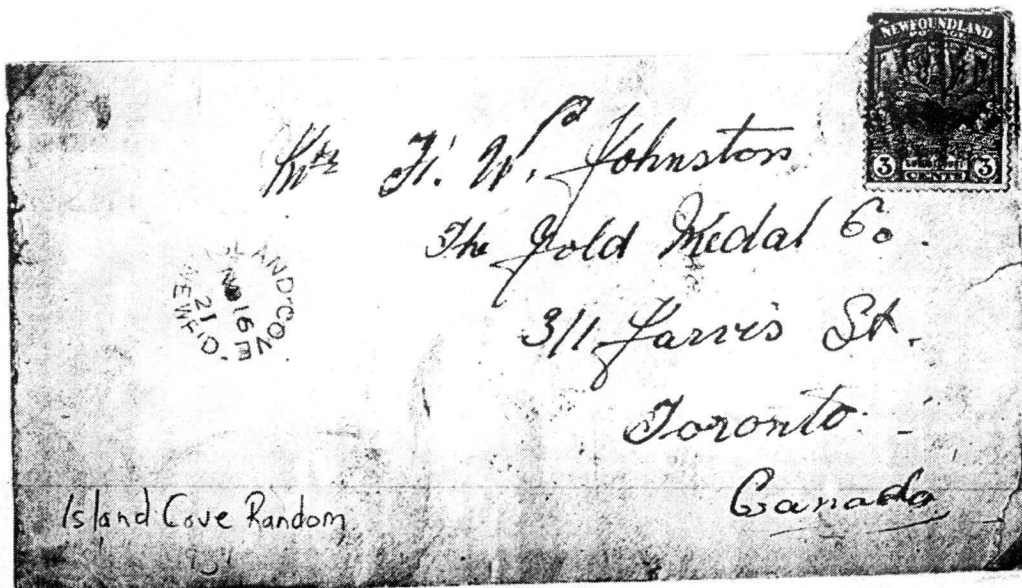 NEWFOUNDLAND
POSTAGE
3 CENTS 3
Mr F. W. Johnston
The Gold Medal Co.
311 Jarvis St.
Toronto
Canada
LAND COVE
16
21
NEWF'D.
Island Cove Random